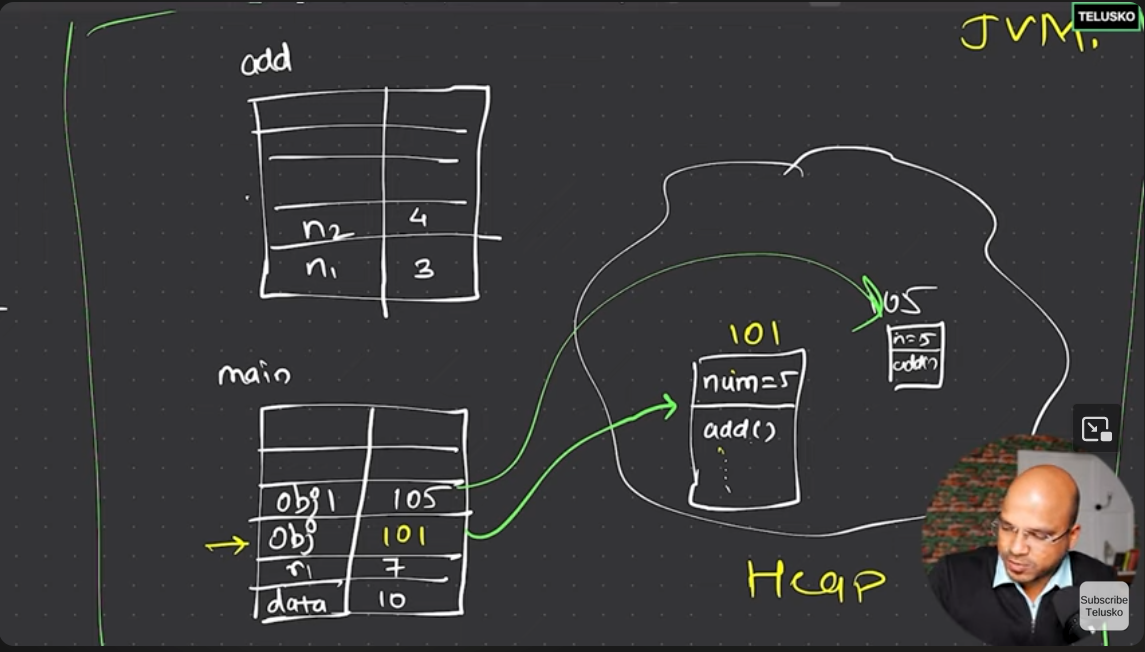 JVM.
TELUSKO
add
n2 4
n1 3
main
obj1 105
obj 101
r1 7
data 10
101
num=5
add()
105
n=5
add()
Heap
Subscribe
Telusko